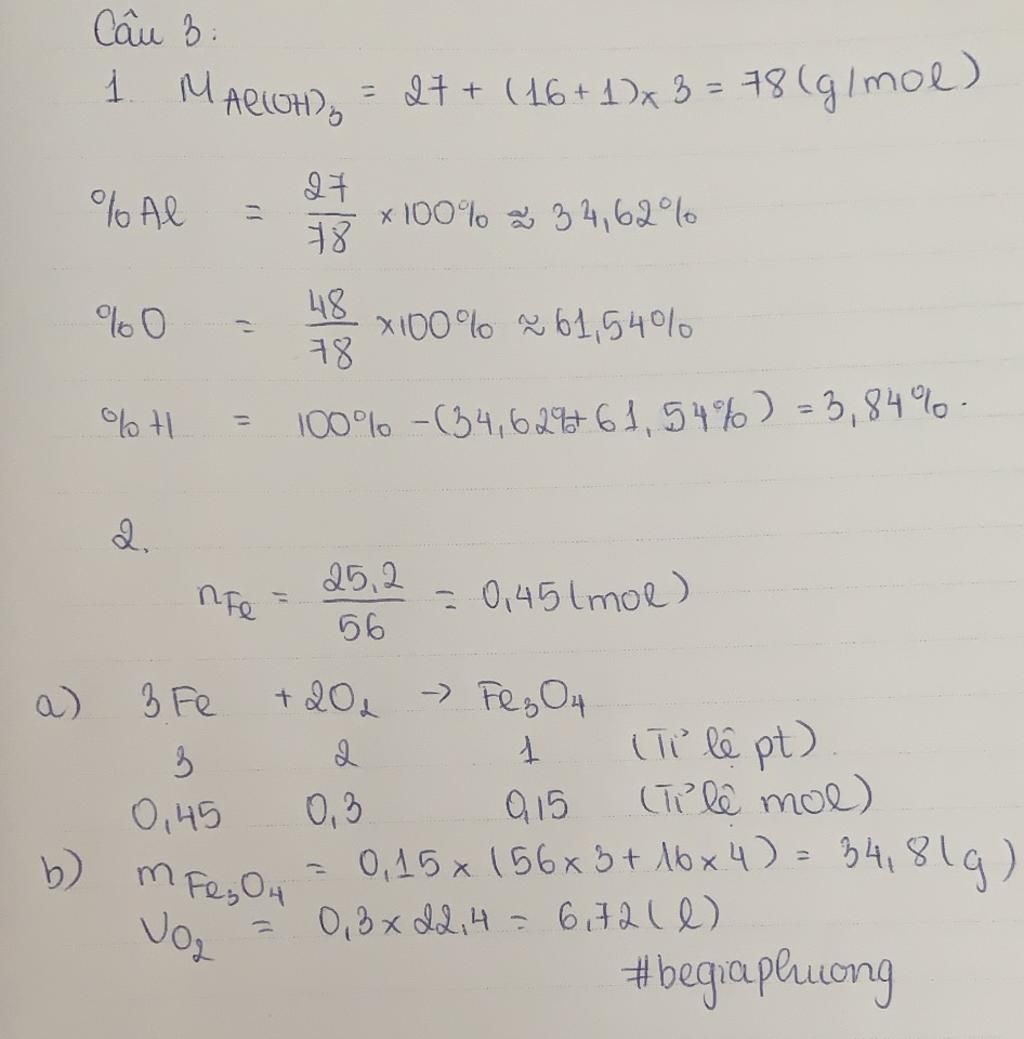 Câu 3:
1. M Al(OH)₃ = 27 + (16 + 1) x 3 = 78 (g/mol)
%Al = 27/78 x 100% ≈ 34,62%
%O = 48/78 x 100% ≈ 61,54%
%H = 100% - (34,62% + 61,54%) = 3,84%.
2.
nFe = 25,2/56 = 0,45 (mol)
a) 3Fe + 2O₂ → Fe₃O₄
3 2 1 (Tỉ lệ pt)
0,45 0,3 0,15 (Tỉ lệ mol)
b) m Fe₃O₄ = 0,15 x (56 x 3 + 16 x 4) = 34,8 (g)
VO₂ = 0,3 x 22,4 = 6,72 (l)
#begiaphuong